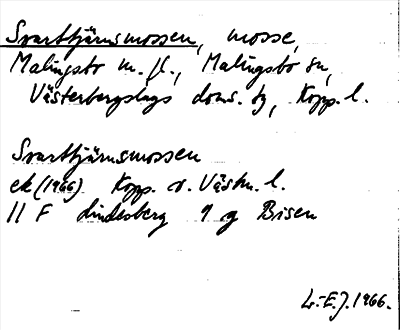 Svarttjärnsmossen, mosse,
Malingsbo m. fl., Malingsbo sn,
Västerbergslags doms. tg, Kopp. l.
Svarttjärnsmossen
ek (1966) Kopp. o. Västm. l.
11 F Lindesberg 9 g Bisen
L.-E. J. 1966.